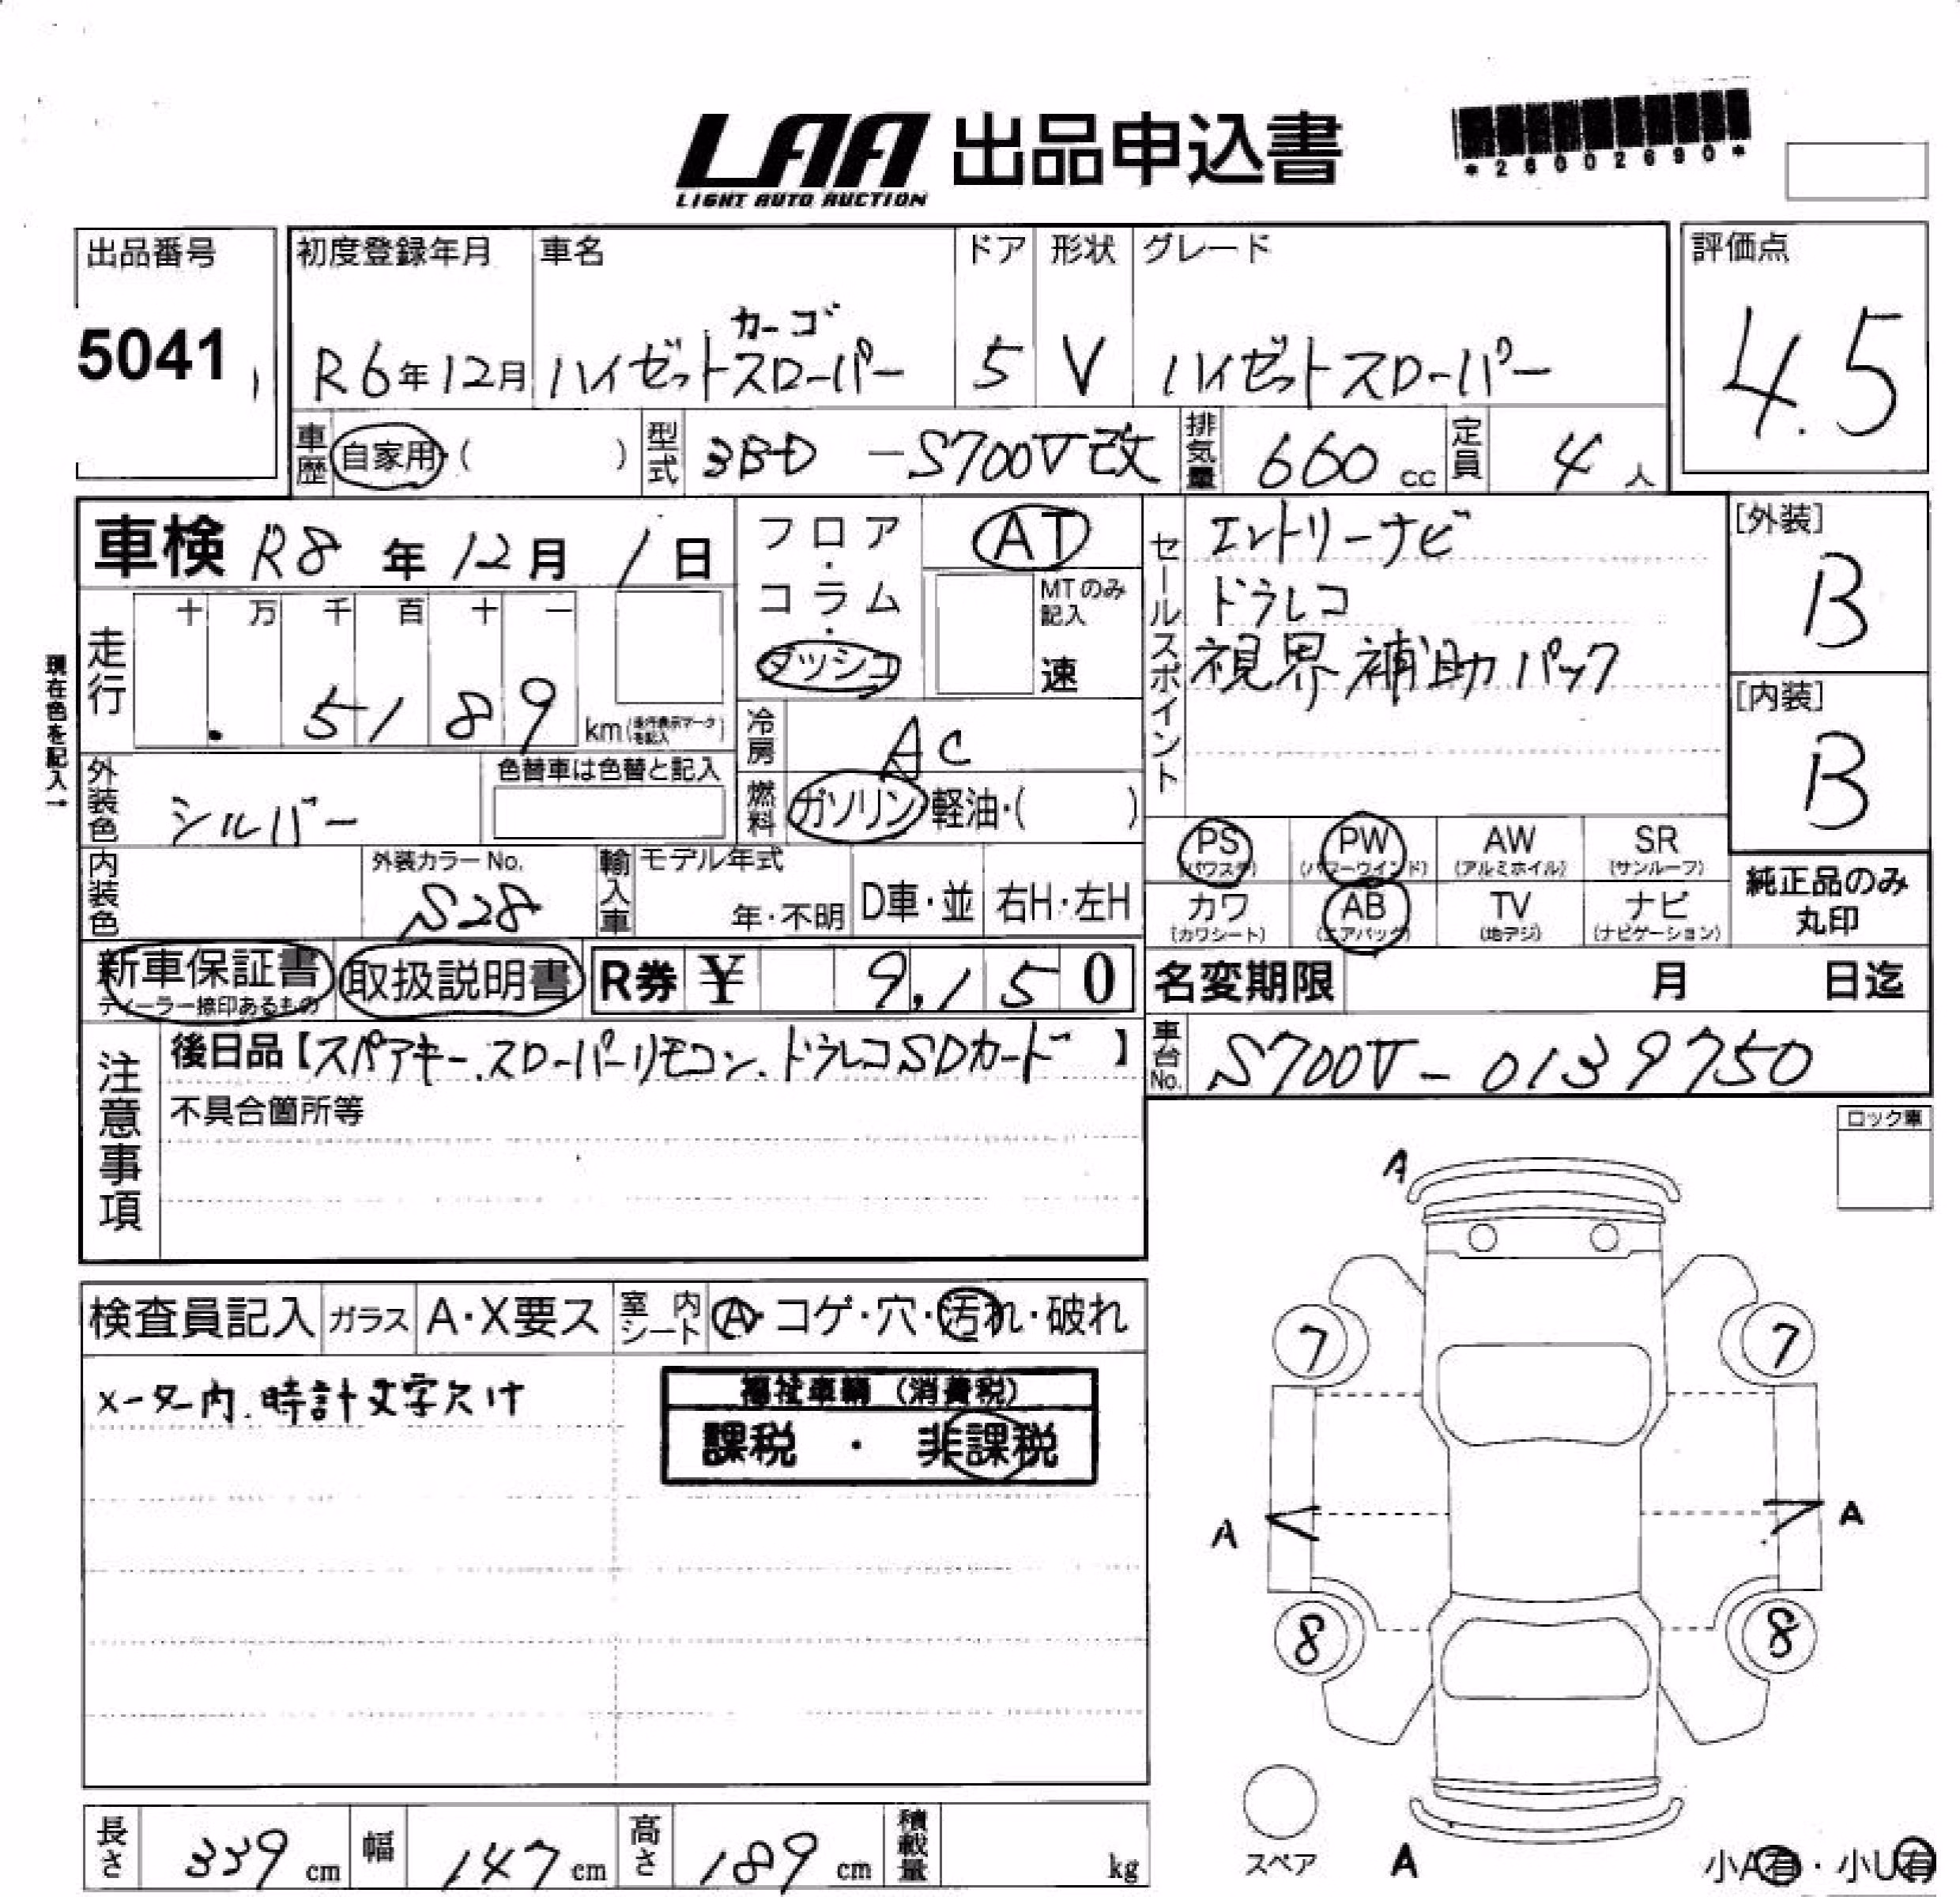 LAA 出品申込書
LIGHT AUTO AUCTION
*26002690*
出品番号
5041
初度登録年月
R6年12月
車名
カーゴ
ハイゼットスローパー
ドア
5
形状
V
グレード
ハイゼットスローパー
評価点
4.5
車歴 自家用・( )
型式 3BD -S700V改
排気量 660 cc
定員 4 人
車検 R8 年 12 月 1 日
フロア・コラム・ダッシュ
AT
MTのみ記入
速
セールスポイント
エントリーナビ
ドラレコ
視界補助パック
[外装]
B
[内装]
B
現在色を記入→
走行
十 万 千 百 十 一
5 1 8 9 km (走行表示マークを記入)
冷房 AC
燃料 ガソリン・軽油・( )
外装色 シルバー
色替車は色替と記入
内装色
外装カラーNo.
S28
輸入車
モデル年式
年・不明
D車・並
右H・左H
PS (パワステ)
PW (パワーウインド)
AW (アルミホイル)
SR (サンルーフ)
カワ (カワシート)
AB (エアバック)
TV (地デジ)
ナビ (ナビゲーション)
純正品のみ丸印
新車保証書
ディーラー捺印あるもの
取扱説明書
R券 ¥ 9,150
名変期限 月 日迄
注意事項
後日品【スペアキー.スローパーリモコン.ドラレコSDカード】
不具合箇所等
車台No. S700V-0139750
ロック車
検査員記入
ガラス A・X要ス
室内シート A・コゲ・穴・汚れ・破れ
メーター内.時計文字欠け
福祉車輌 (消費税)
課税 ・ 非課税
A
7
7
A
A
8
8
スペア
A
小A有・小U有
長さ 339 cm
幅 147 cm
高さ 189 cm
積載量 kg